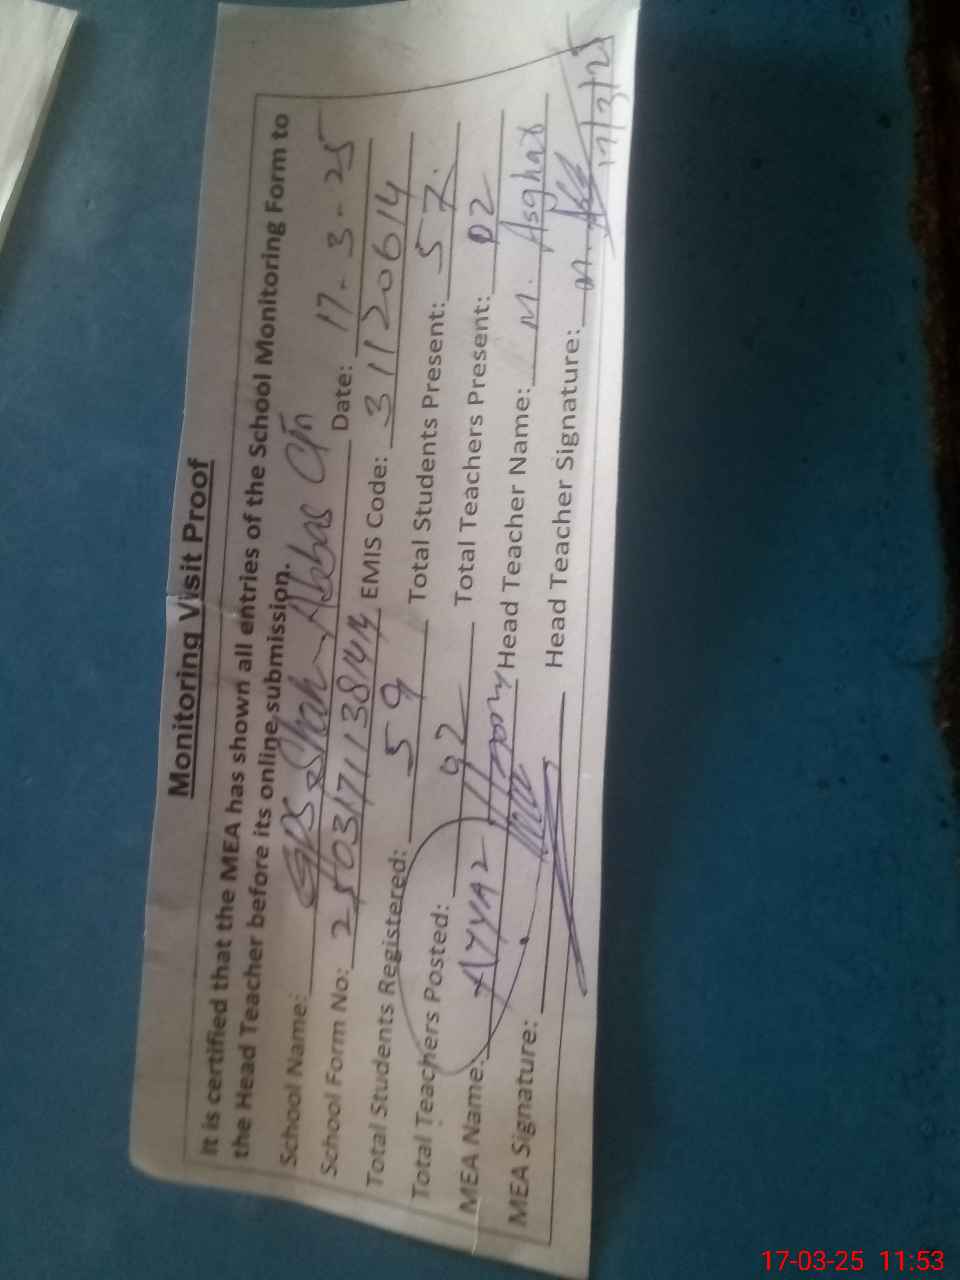 Monitoring Visit Proof
It is certified that the MEA has shown all entries of the School Monitoring Form to
the Head Teacher before its online submission.
School Name: GPS Shah Abbas Date: 17-3-25
School Form No: EMIS Code: 31120614
Total Students Registered: 59 Total Students Present: 57
Total Teachers Posted: 02 Total Teachers Present: 02
MEA Name: Head Teacher Name: M. Asghar
MEA Signature: Head Teacher Signature:
17/3/25
17-03-25 11:53